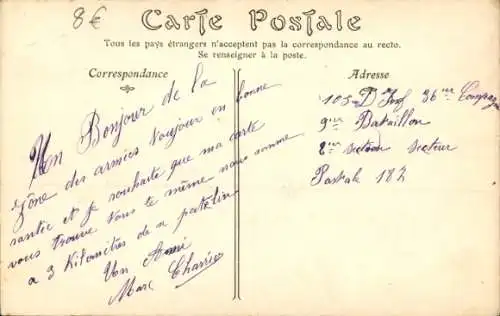 8€
Carte Postale
Tous les pays étrangers n'acceptent pas la correspondance au recto.
Se renseigner à la poste.
Correspondance
Un Bonjour de la
zône des armées toujour en bonne
santée et je souhaite que ma carte
vous trouve tous te même nous somme
a 3 Kilomètres de
Un Ami
Marc
Adresse
105 D'Inf 36me Compag
9me Bataillon
2me section secteur
Postale 182